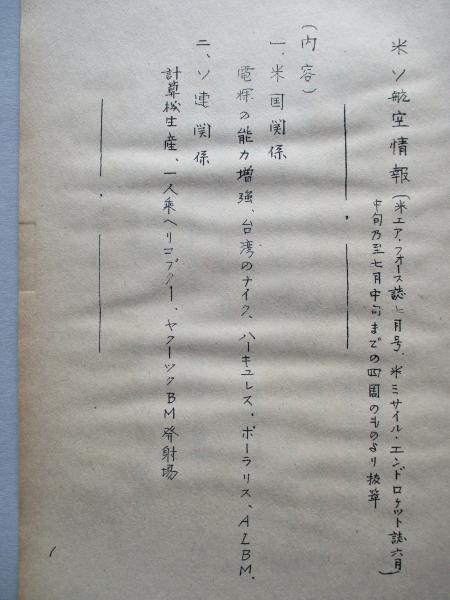 米ソ航空情報(米エア、フォース誌七月号、米ミサイル・エンドロケット誌六月
中旬乃至七月中旬までの四周のものより抜萃)
(内容)
一、米国関係
電探の能力増強、台湾のナイク、ハーキュレス・ポーラリス、ALBM.
二、ソ連関係
計算機生産、一人乗ヘリコプター、ヤクーツクBM発射場
1